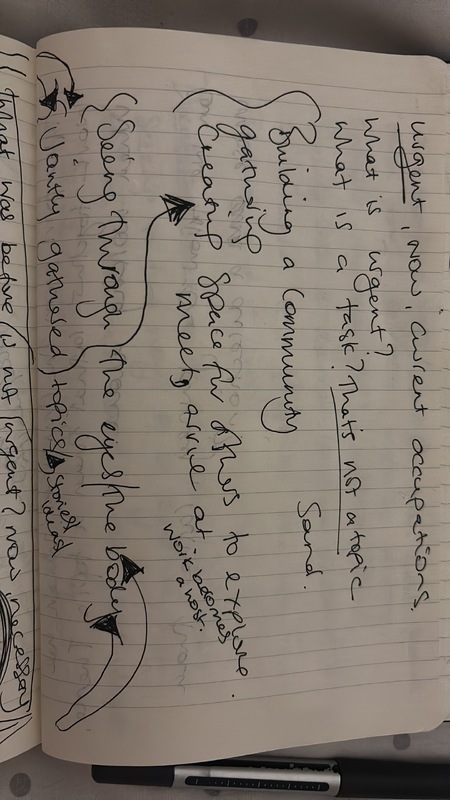 urgent, now, current occupations.
what is urgent?
what is a task? That's not a topic
Sand.
Building a community
gathering
Creating space for others to explore
meet, arrive at
work becomes
a host.
Seeing through the eyes/the body
Jointly gathered topics/
shared
What was before (not urgent? now necessary